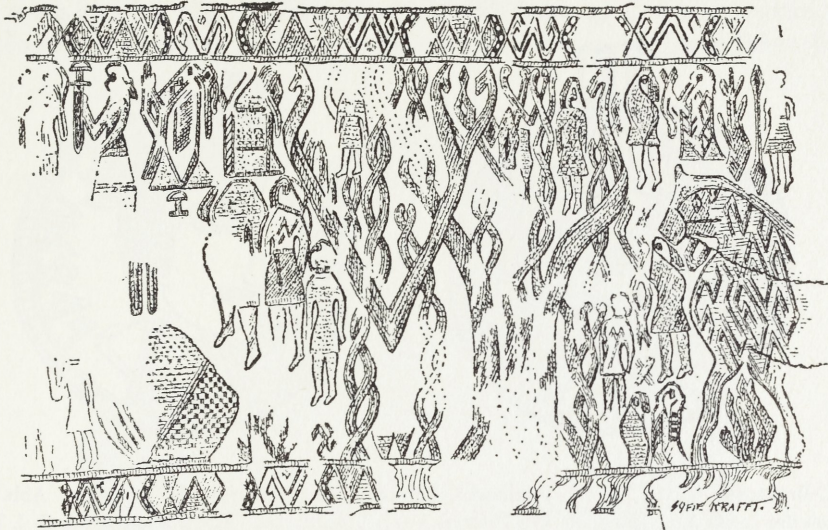 SOFIE KRAFFT.